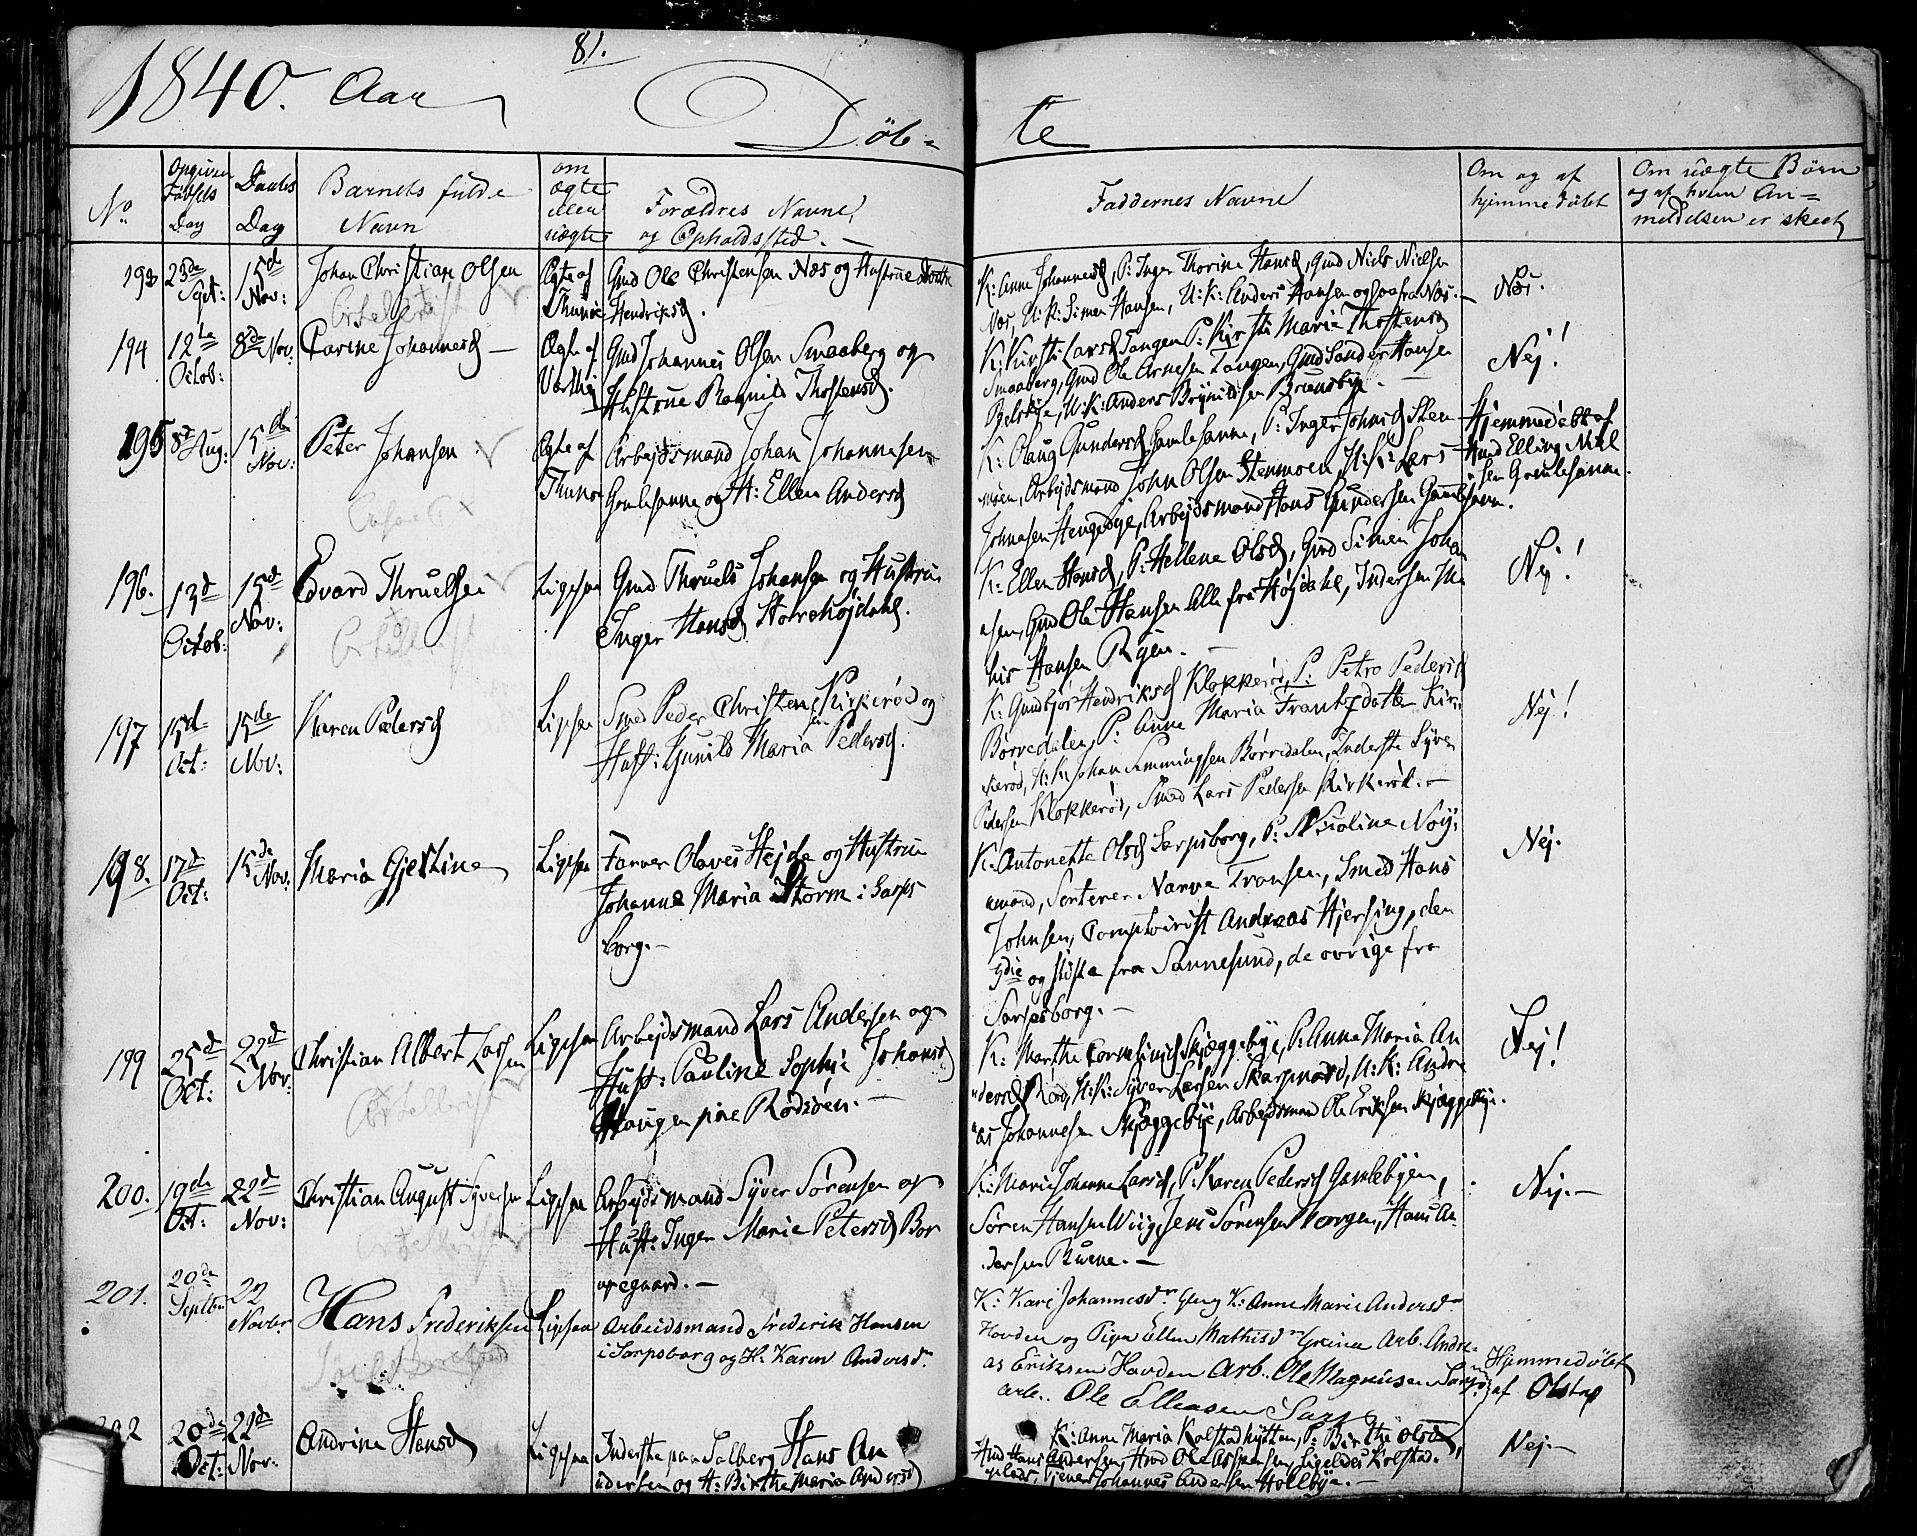 81.
1840. Aar
Döb-
te
No
Opgiven
Födsels
Dag
Daabs
Dag
Barnets fulde
Navn
om
ægte
eller
uægte
Forældres Navne,
og Opholdssted.
Faddernes Navne
Om og af
hjemmedöbt
Om uægte Børn
og af hvem An=
meldelsen er skeet
193
23de
Sept:
15de
Nov:
Johan Christian Olsen
Ægte af
Gmd Ole Christensen Næs og Hustrue
Hendriksd.
K: Anne Johannesd, P: Inger Thorine Hansd, Gmd Niels Nielsen
Næs, U:K: Simen Hansen, U:K: Anders Hansen ogsaa fra Næs.
Nei.
194
12te
Octob:
8de Nov:
Carine Johannesd
Ægte af
Gmd Johannes Olsen Smaaberg og
Hustrue Ragnild Thostensd.
K: Kirsti Larsd Tangen P: Kirsti Maria Thostensd
Smaaberg, Gmd Ole Arnesen Tangen, Gmd Sander Hansen
U:K: Anders Brynildsen
Nej!
195
8de Aug:
15de
Nov:
Peter Johansen
Ægte af
Arbejdsmand Johan Johannesen
Gamlesanne og H: Ellen Andersd
K: Olaug Gundersd Gamlesanne, P: Inger Johnsd Sten
moen, Arbejdsmand John Olsen Stenmoen, U:K: Lars
Johnsen Hengedye, Arbejdsmand Hans Gundersen Gamlesanne.
Hjemmedöbt af
Gmd Elling Niel
sen Gamlesanne.
196.
13d
Octob:
15de
Nov:
Edvard Thruelsen
Ligesaa
Gmd Thruels Johansen og Hustrue
Inger Hansd Storehöjdahl.
K: Ellen Hansd, P: Hellene Olsd, Gmd Simen Johan
nsen, Gmd Ole Hansen alle fra Höjdahl,
Hansen Ryen.
Nej!
197
15d
Oct:
15de
Nov:
Karen Pedersd
Ligesaa
Smed Peder Christensen Kirkeröd og
Hust: Gunild Maria Pedersd.
K: Gunbjör Hendriksd Klokkeröd, P: Petro Pedersd
Börredalen, P: Anne Maria Frantzdatter Kir
keröd, U:K: Johan Ammingsen Börredalen, Inderste Syver
Pedersen Klokkeröd, Smed Lars Pedersen Kirkeröd.
Nej!
198.
17d
Oct:
15de
Nov:
Maria Gjestine
Ligesaa
Farver Olaves Hejde og Hustrue
Johanne Maria Storm i Sarps
borg.
K: Antonette Olsd Sarpsborg, P: Nicoline
Narve Transen, Smed Hans
Johnsen, Comptoirist Andreas Hjersing, den
3die og sidste fra Sannesund, de ovrige fra
Sarpsborg.
Nej.
199
25d
Oct:
22d
Nov:
Christian Albert Larsen
Ligesaa
Arbejdsmand Lars Andersen og
Hust: Pauline Sophie Johansd
Haugen
K: Marthe Corneliusd Skjæggebye, P: Anne Maria An
dersd Röd, U:K: Syver Larsen Skarpnord, U:K: Andre
as Johannesen Skjæggebye, Arbejdsmand Ole Eriksen Skjæggebye.
Nej!
200.
19de
Oct:
22d
Nov:
Christian August Syversen
Ligesaa
Arbejdsmand Syver Sörensen og
Hust: Inger Marie Petersd Bor
regaard.
K: Marie Johanne Larsd, P: Karen Pedersd Gamlebyen,
Sören Hansen Wiig, Jens Sörensen Borgen, Hans An
dersen Ruene.
Nej.
201.
20de
Septbr
22
Novbr
Hans Frederiksen
Ligesaa
Arbeidsmand Frederik Hansen
i Sarpsborg og H: Karen Andersdr
K: Kari Johannesdr Gleng K: Anne Marie Andersdr
Hovden og Pigen Ellen Mathisdr Greiner Arb. Andre
as Eriksen Hovden Arb. Ole Magnusen
arb. Ole Ellensen Sarp
Hjemmedöbt
af Olstad
202
20de
Oct:
22de
Nov:
Andrine Hansd
Ligesaa
Inderste paa Solberg Hans An
dersen og H: Birthe Maria Andersd
K: Anne Maria Kolstadhytten, P: Birthe Olsd,
Gmd Hans Andersen, Gmd Ole Aspensen, ligeledes Kolstad.
Tjener Johannes Andersen Hollbye.
Nej.